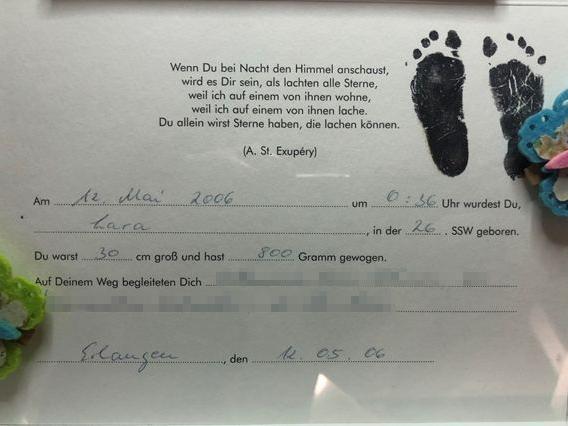 Wenn Du bei Nacht den Himmel anschaust,
wird es Dir sein, als lachten alle Sterne,
weil ich auf einem von ihnen wohne,
weil ich auf einem von ihnen lache.
Du allein wirst Sterne haben, die lachen können.
(A. St. Exupéry)
Am 12. Mai 2006 um 0:36 Uhr wurdest Du,
Lara, in der 26. SSW geboren.
Du warst 30 cm groß und hast 800 Gramm gewogen.
Auf Deinem Weg begleiteten Dich
Erlangen, den 12.05.06